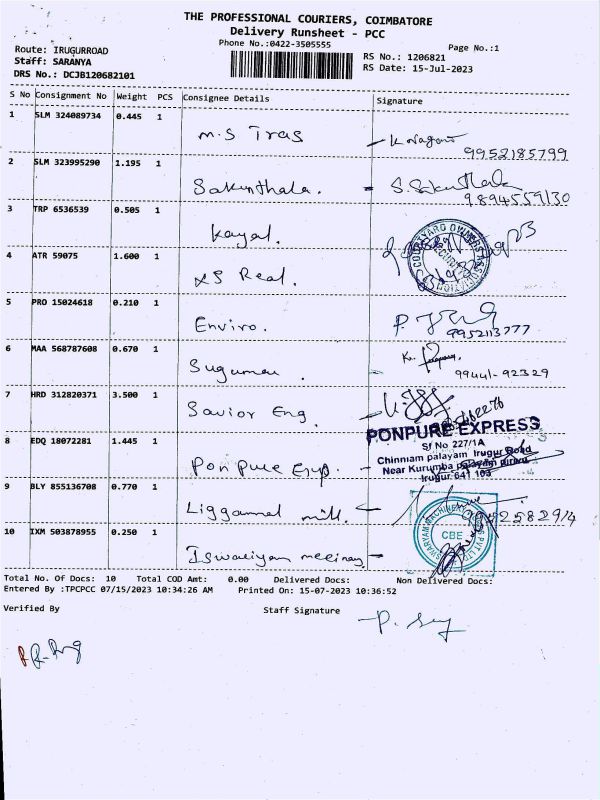 THE PROFESSIONAL COURIERS, COIMBATORE
Delivery Runsheet - PCC
Phone No.:0422-3505555
Page No.:1
Route: IRUGURROAD
Staff: SARANYA
DRS No.: DCJB120682101
RS No.: 1206821
RS Date: 15-Jul-2023
S No Consignment No Weight PCS Consignee Details Signature
1 SLM 324089734 0.445 1 M.S Tras
9952185799
2 SLM 323995290 1.195 1 Sakunthala. - S. Sakunthala
9894559130
3 TRP 6536539 0.505 1 Kayal.
COURTYARD OWNERS ASSOCIATION
4 ATR 59075 1.600 1 XS Real.
5 PRO 15024618 0.210 1 Enviro.
9952113777
6 MAA 568787608 0.670 1 Sugumau.
99441-92329
7 HRD 312820371 3.500 1 Savior Eng
PONPURE EXPRESS
Sf No 227/1A
Chinniam palayam Irugur Road
Near Kurumba palayam pirivu
Irugur 641 103
8 EDQ 18072281 1.445 1 Ponpure Exp. -
9 BLY 855136708 0.770 1 Liggammal mill.
CBE
10 IXM 503878955 0.250 1
Total No. Of Docs: 10 Total COD Amt: 0.00 Delivered Docs: Non Delivered Docs:
Entered By :TPCPCC 07/15/2023 10:34:26 AM Printed On: 15-07-2023 10:36:52
Verified By Staff Signature